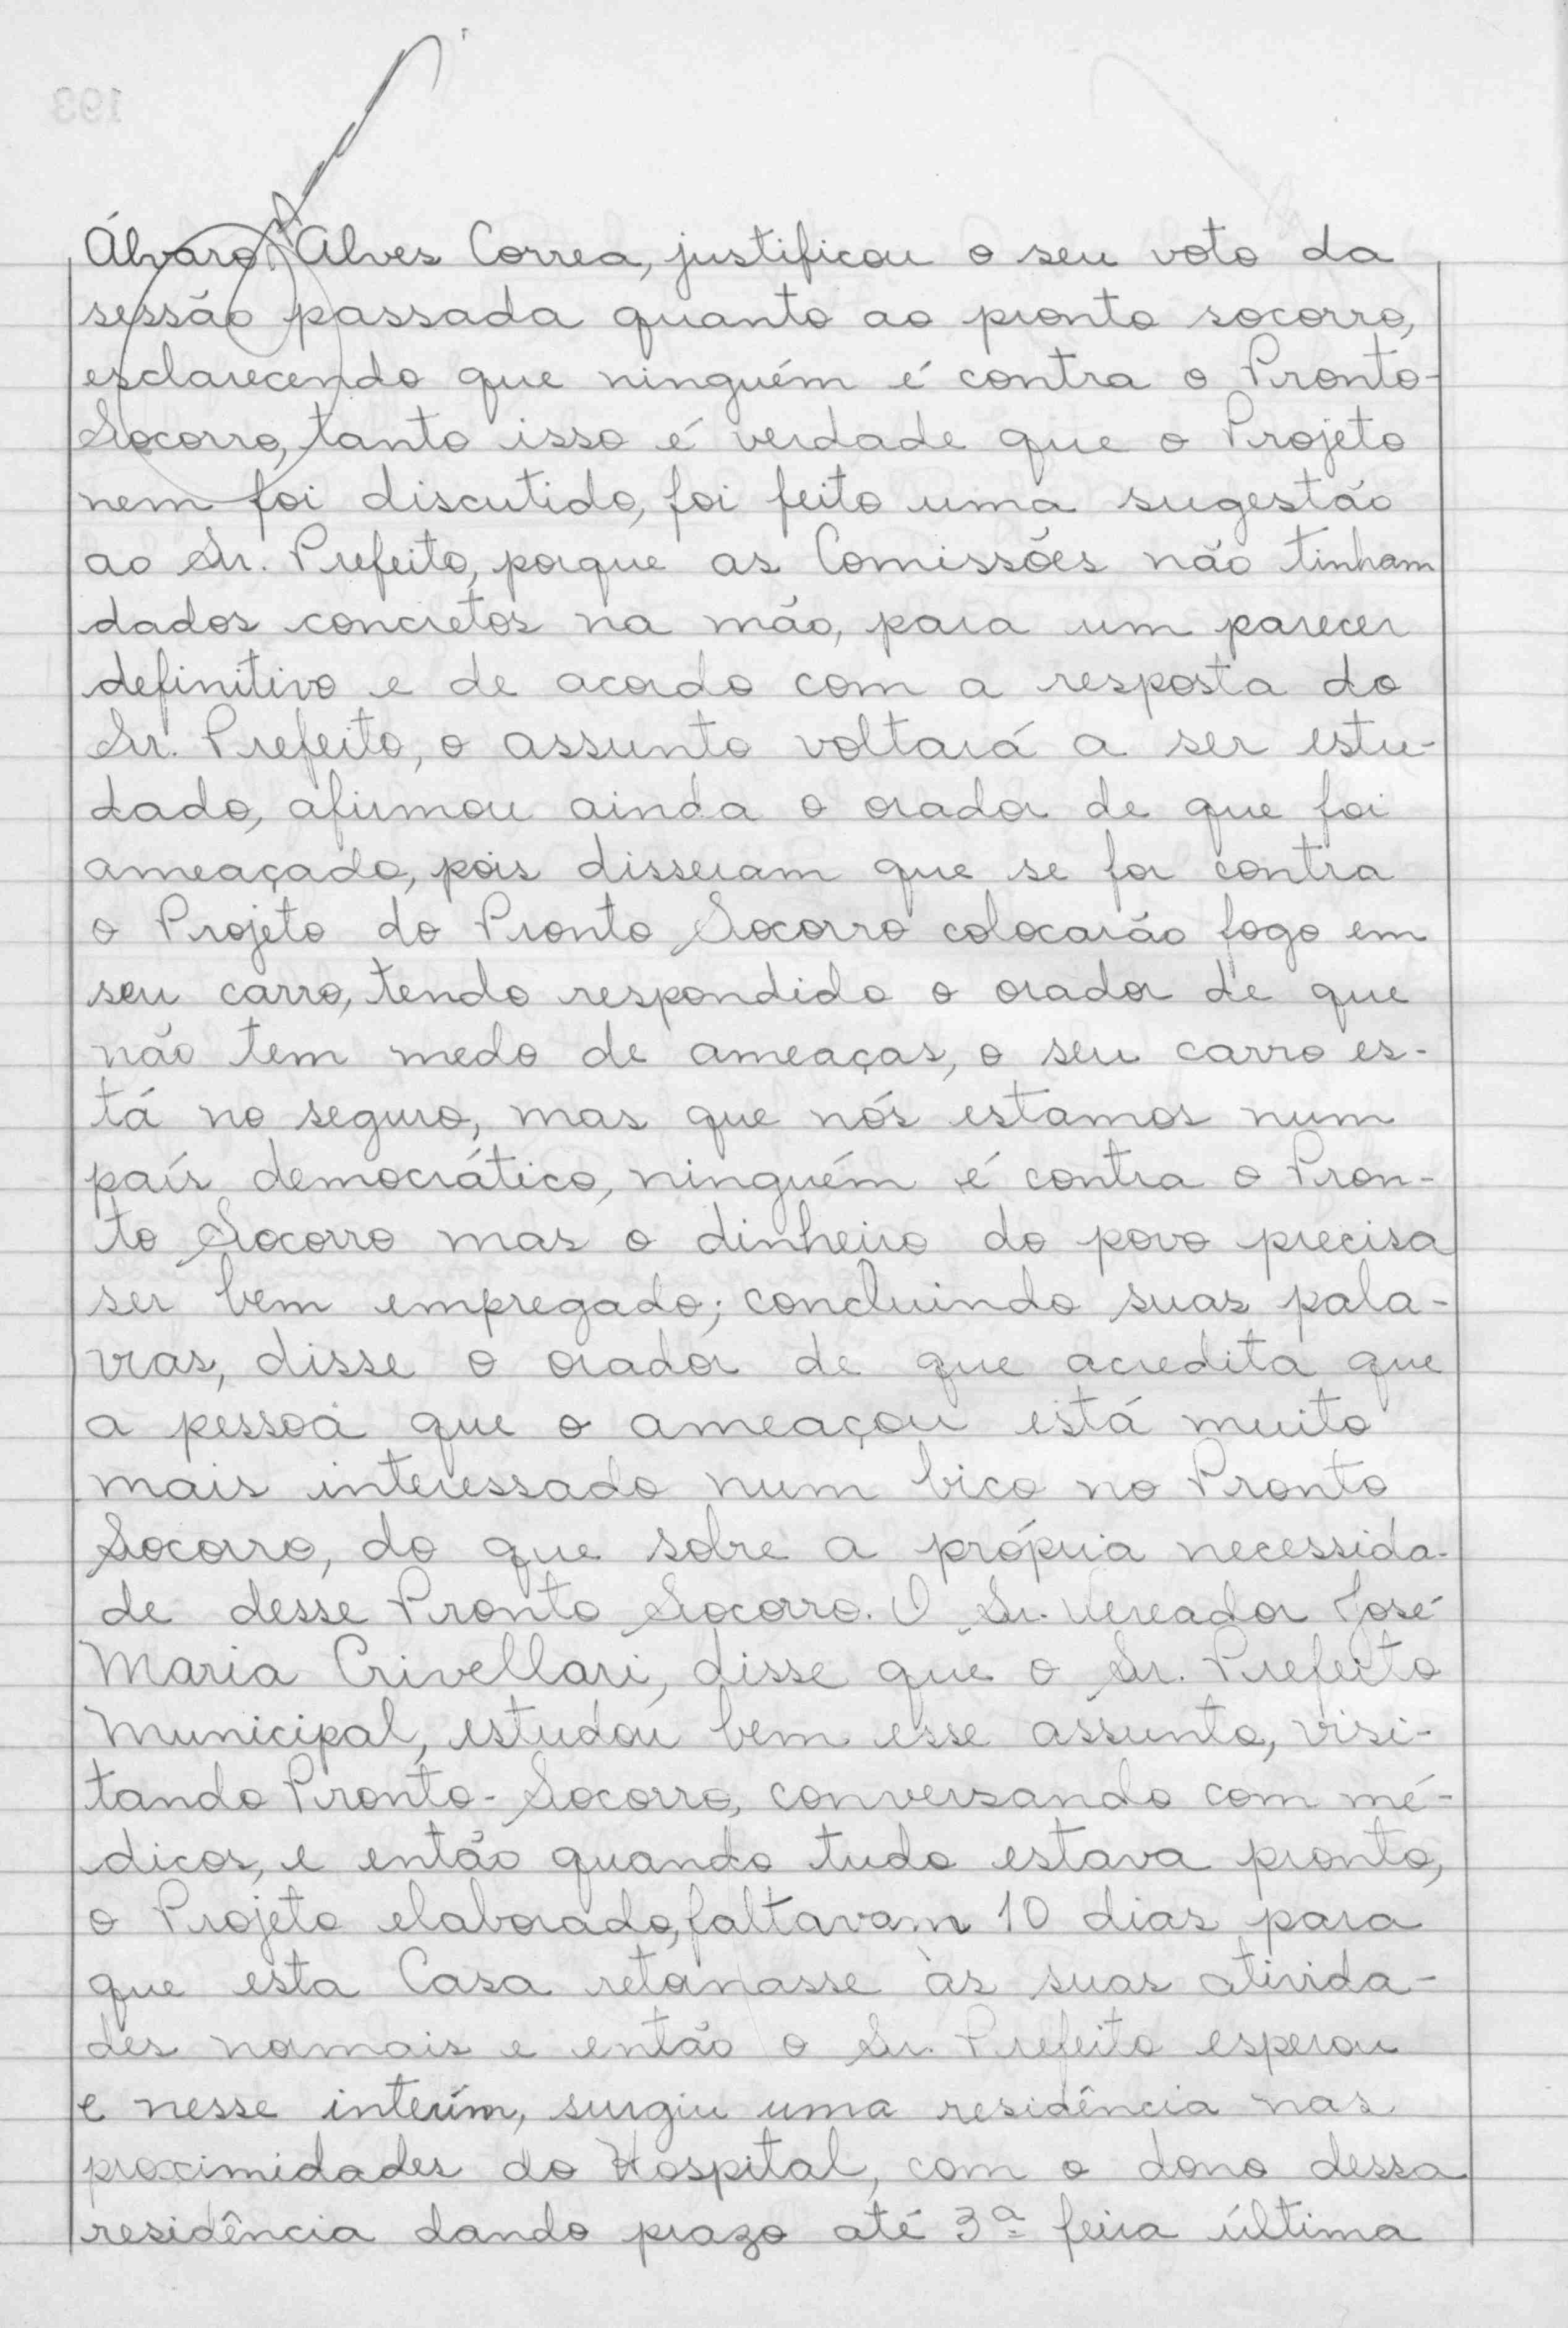 Álvaro Alves Correa, justificou o seu voto da
sessão passada quanto ao pronto socorro,
esclarecendo que ninguém é contra o Pronto-
Socorro, tanto isso é verdade que o Projeto
nem foi discutido, foi feito uma sugestão
ao Sr. Prefeito, porque as Comissões não tinham
dados concretos na mão, para um parecer
definitivo e de acordo com a resposta do
Sr. Prefeito, o assunto voltará a ser estu-
dado, afirmou ainda o orador de que foi
ameaçado, pois disseram que se for contra
o Projeto do Pronto Socorro colocarão fogo em
seu carro, tendo respondido o orador de que
não tem medo de ameaças, o seu carro es-
tá no seguro, mas que nós estamos num
país democrático, ninguém é contra o Pron-
to Socorro mas o dinheiro do povo precisa
ser bem empregado; concluindo suas pala-
vras, disse o orador de que acredita que
a pessoa que o ameaçou está muito
mais interessado num bico no Pronto
Socorro, do que sobre a própria necessida-
de desse Pronto Socorro. O Sr. Vereador José
Maria Crivellari, disse que o Sr. Prefeito
Municipal, estudou bem esse assunto, visi-
tando Pronto-Socorro, conversando com mé-
dicos, e então quando tudo estava pronto,
o Projeto elaborado, faltavam 10 dias para
que esta Casa retornasse às suas ativida-
des normais e então o Sr. Prefeito esperou
e nesse interim, surgiu uma residência nas
proximidades do Hospital, com o dono dessa
residência dando prazo até 3ª feira última